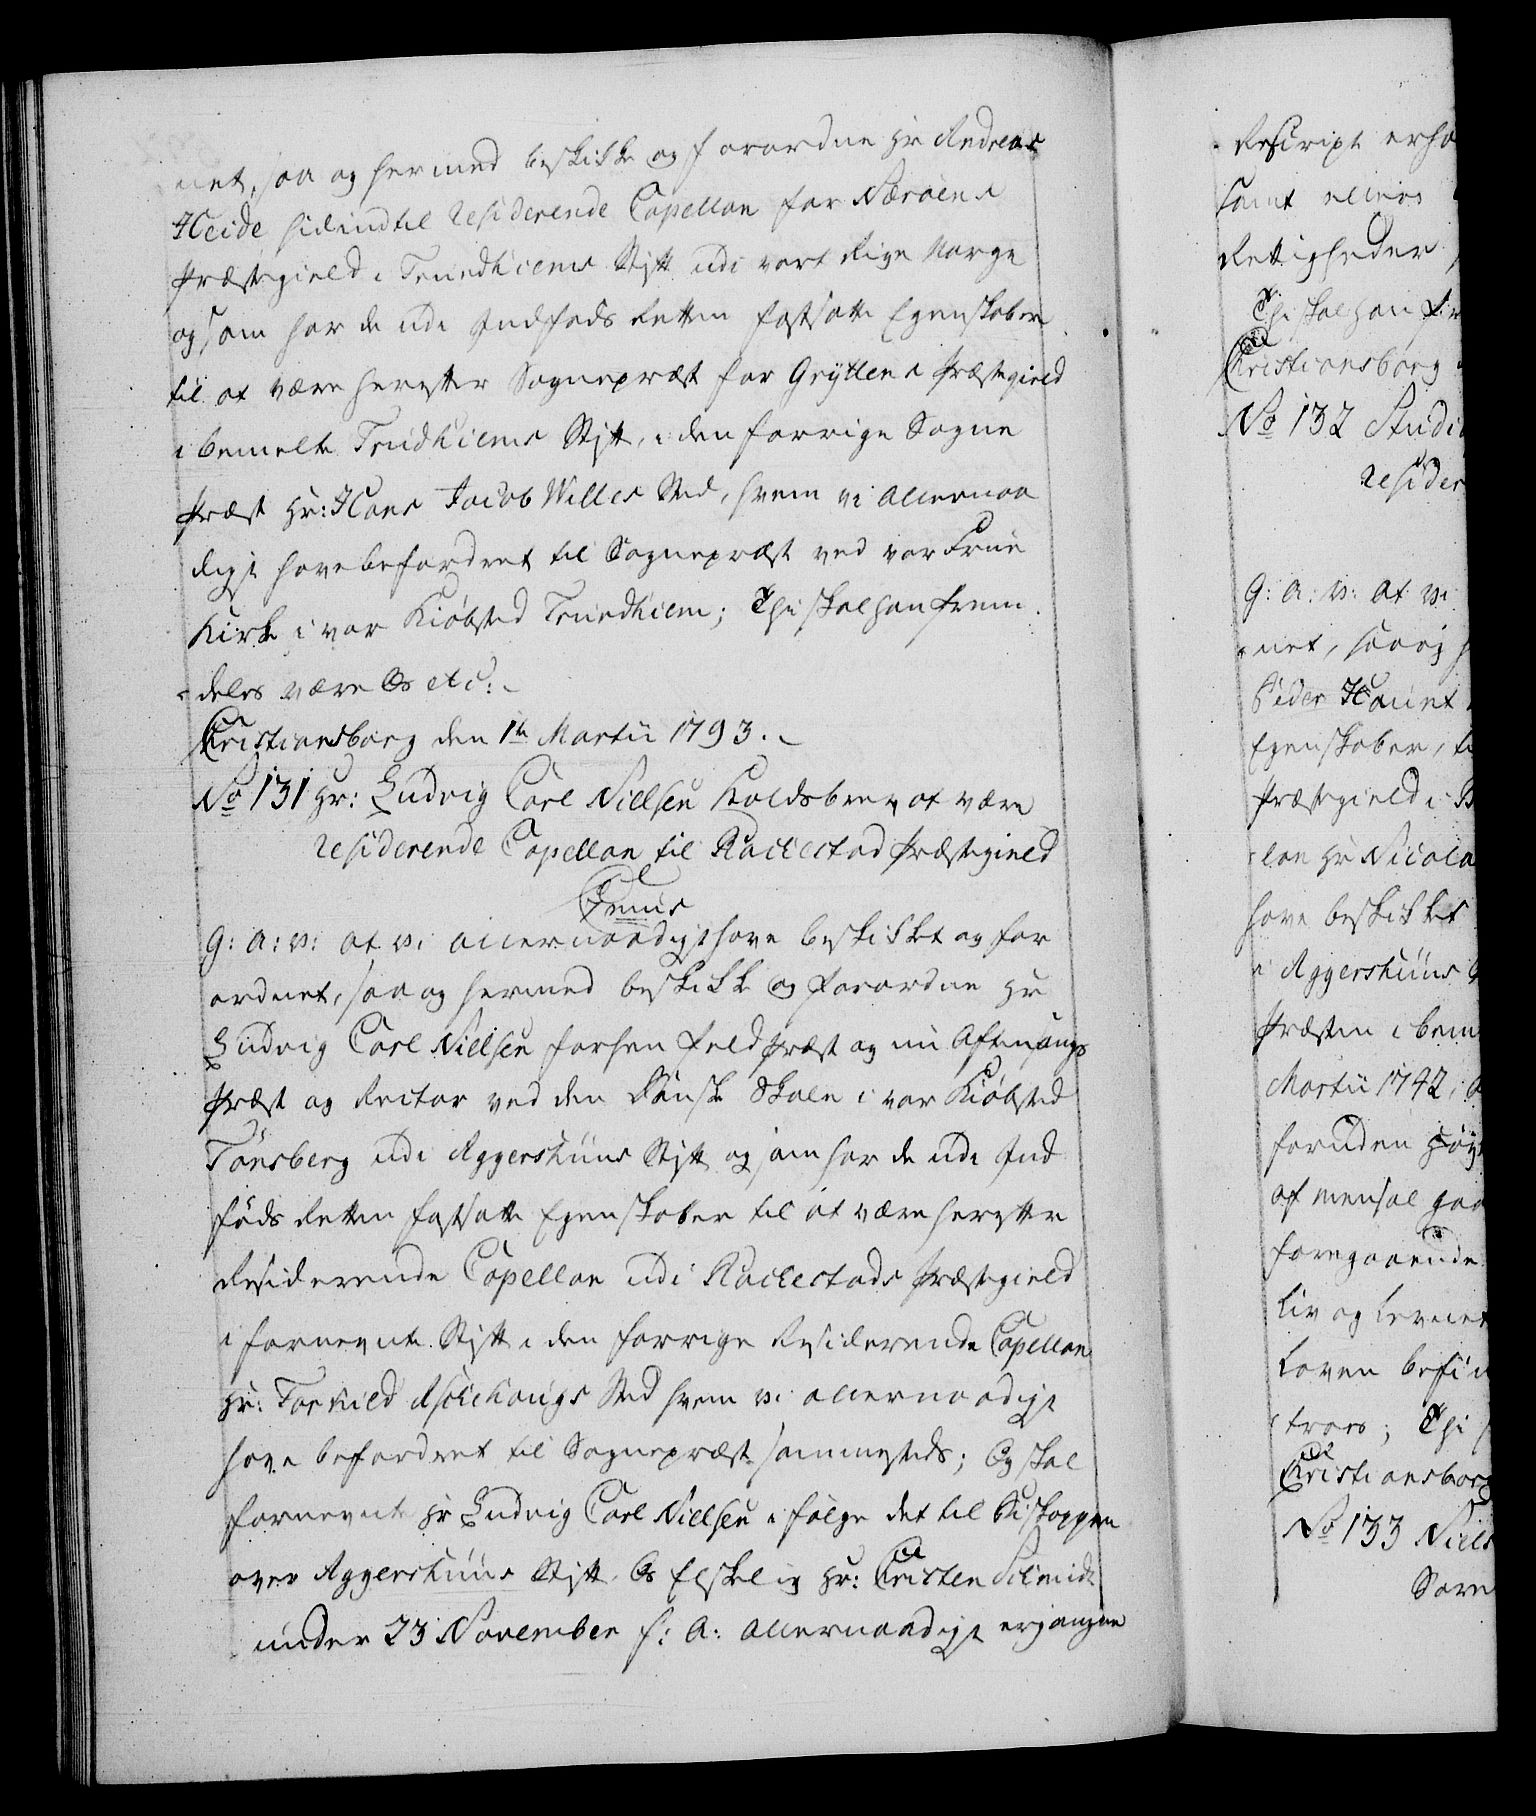 net, saa og hermed beskikke og forordne Hr Andreas
Heide hidindtil residerende Capellan for Nærøens
Præstegield i Trundhiems Stift udi vort Rige Norge
og som har de udi Indføds Retten fastsatte Egenskaber
til at være herefter Sognepræst for Gryttens Præstegield
i bemelte Trundhiems Stift, i den forrige Sogne
Præst Hr: Hans Jacob Willes Sted, hvem vi allernaa
digst have befordret til Sognepræst ved vor Frue
Kirke i vor Kiøbsted Trundhiem; Thi skal han frem
deles være Os etc:
Christiansborg den 1te Martii 1793.
No 131 Hr: Ludvig Carl Nielsen Kaldsbrev at være
residerende Capellan til Rackestad Præstegield
G: A: V: at vi allernaadigst have beskikket og for
ordnet, saa og hermed beskikke og forordne Hr
Ludvig Carl Nielsen forhen Feldpræst og nu Aftensangs
Præst og Rector ved den Danske Skole i vor Kiøbsted
Tønsberg udi Aggershuus Stift og som har de udi Ind
føds Retten fastsatte Egenskaber til at være herefter
Residerende Capellan udi Rackestads Præstegield
i fornevnte Stift i den forrige Residerende Capellan
Hr: Torkild Aschehougs Sted hvem vi allernaadigst
have befordret til Sognepræst sammesteds; Og skal
fornevnte Hr Ludvig Carl Nielsen i følge det til Biskoppen
over Aggershuus Stift Os Elskelig Hr: Christen Schmidt
under 23 November f: A: allernaadigst ergangne
Rescript erho
samt ellers
Rettigheder
Thi skal han fr
Christiansborg
No 132 Studi
resider
G: A: V: at vi
net, saa og h
Peder Hount
Egenskaber, ti
Præstegield i B
lan Hr Nicola
have beskikket
i Aggershuus
Præsten i bem
Martii 1742,
foruden Høy
af mensal gaa
foregaaende
Liv og Levnet
Loven befin
troes; Thi
Christiansborg
No 133 Niels
Sorne